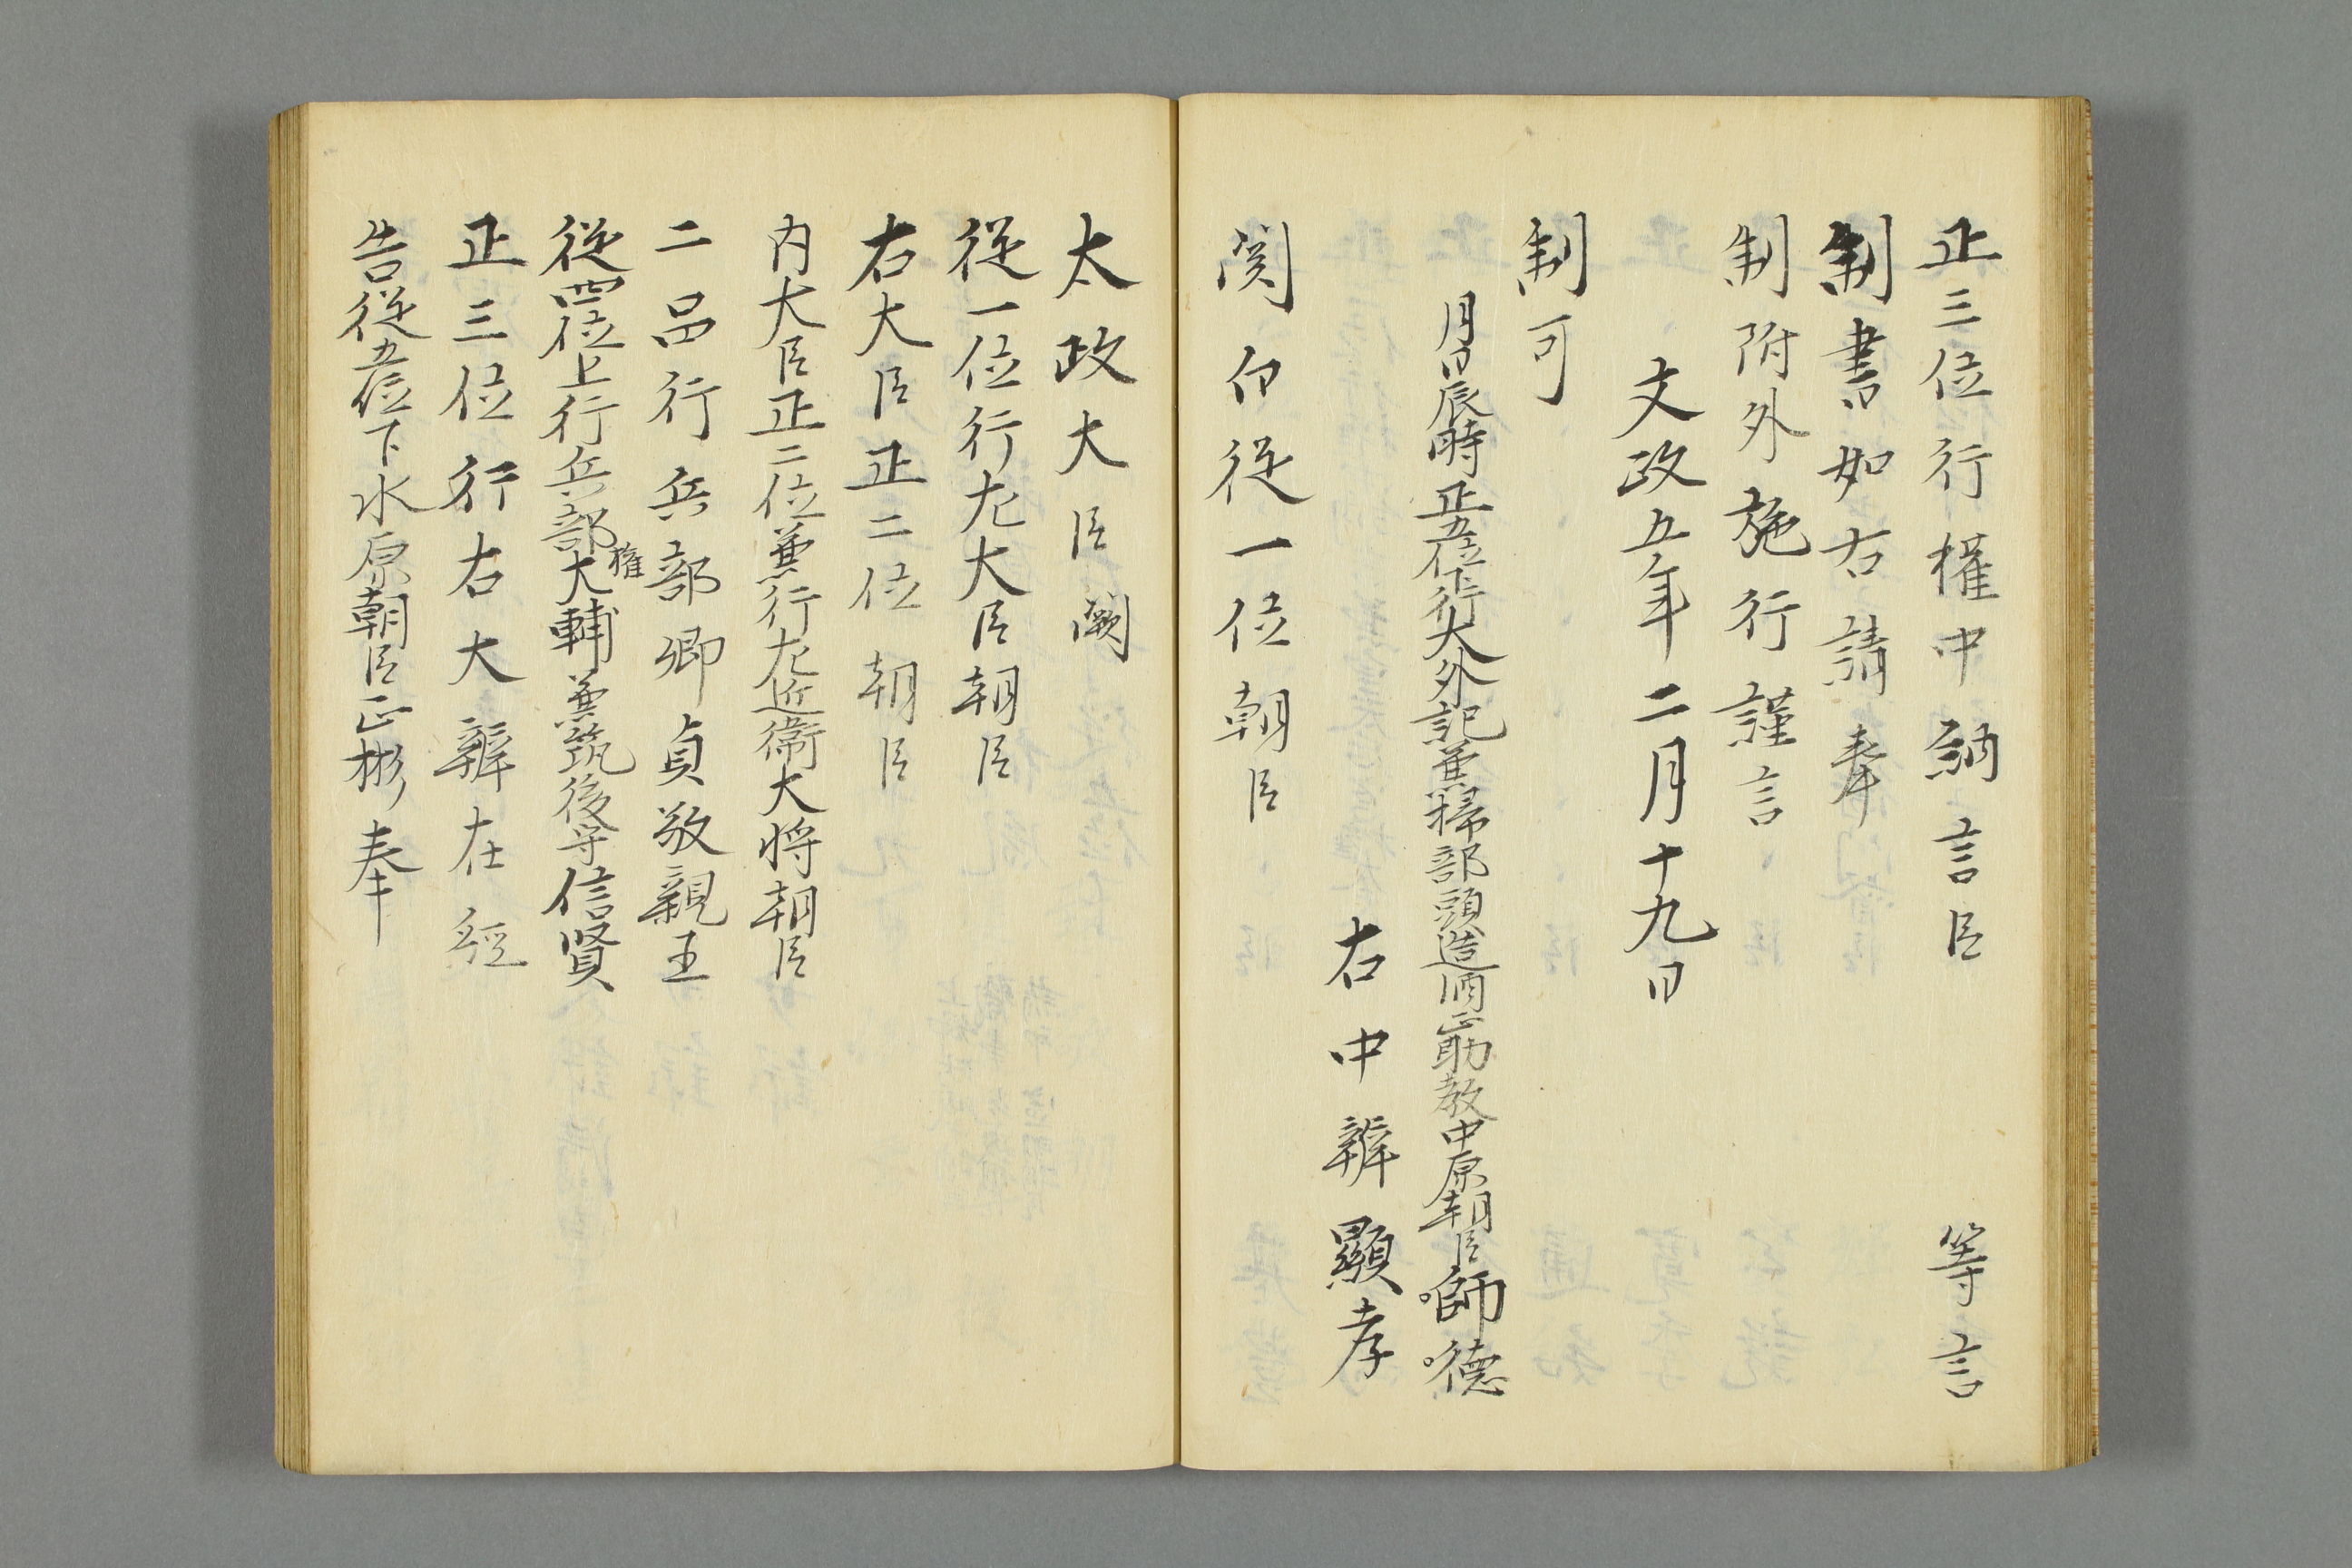 正三位行權中納言臣　等言
制書如右請奉
制附外施行謹言
文政五年二月十九日
制可
月日辰時正五位下行大外記兼掃部頭造酒正助教中原朝臣師德
右中辨顯孝
関白従一位朝臣
太政大臣闕
従一位行左大臣朝臣
右大臣正二位朝臣
内大臣正二位兼行左近衛大将朝臣
二品行兵部卿貞敬親王
従四位上行兵部權大輔兼筑後守信賢
正三位行右大辨在經
告従五位下水原朝臣正彬奉